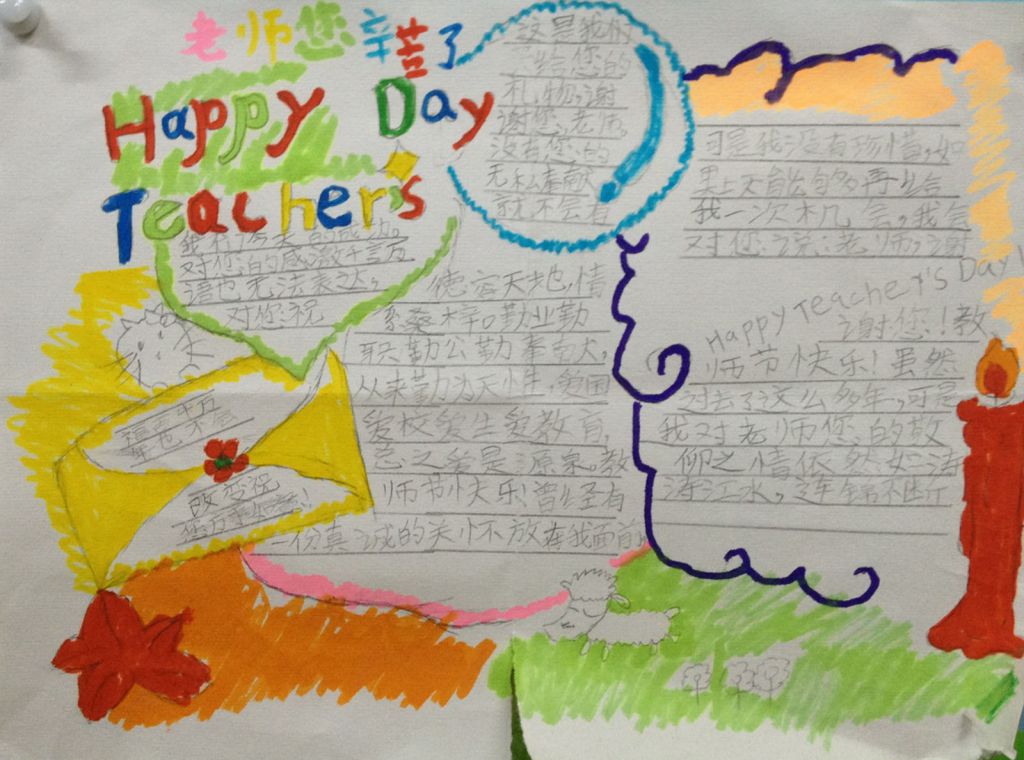 老师您辛苦了
Happy Day
Teacher's
这是我们
给您的
礼物,谢
谢您,老师,
没有您的
无私奉献
就不会有
我的成功。
对您的感激千言万
语也无法表达,
对您祝
福
改变祝
您万事如意!
德容天地,情
系桑梓。勤业勤
职勤公勤奉
从来勤为天,爱国
爱校爱生爱教育,
总之爱是源泉。教
师节快乐!曾经有
一份真诚的关怀放在我面前
可是我没有珍惜,如
果上天能够再给
我一次机会,我会
对您说:老师,谢
Happy Teacher's Day!
谢您!教
师节快乐!虽然
过去了这么多年,可是
我对老师您的敬
仰之情依然如滔
滔江水,连绵不断